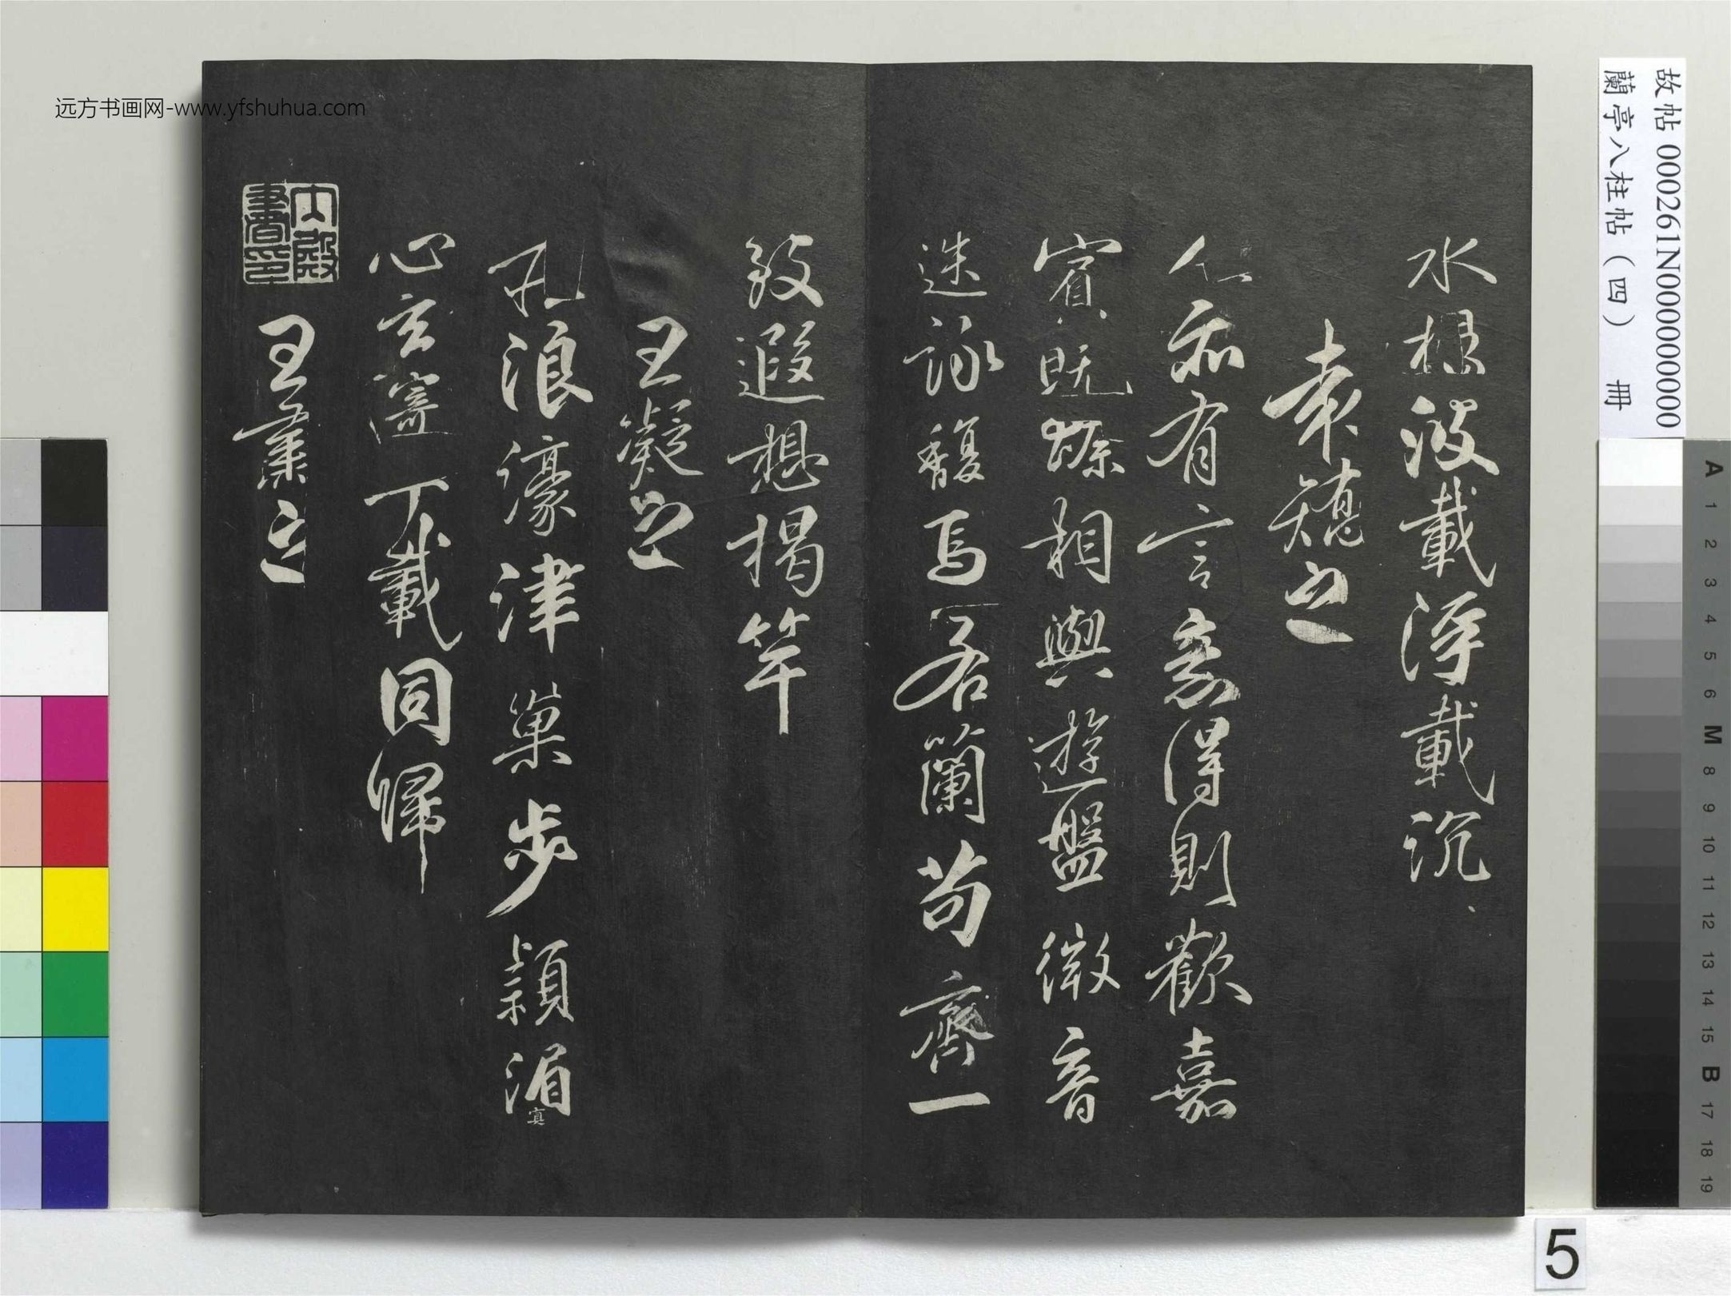 远方书画网-www.yfshuhua.com
故帖000261N000000000
蘭亭八柱帖（四） 冊
水揚波載浮載沉
袁嶠之
人亦有言意得則歡嘉
賓既臻相與遊盤微音
迭詠馥焉若蘭苟齊一
致遐想揭竿
王凝之
莊浪濠津巢步潁湄
冥
心玄寄千載同歸
内殿書印
王肅之
A 1 2 3 4 5 6 M 8 9 10 11 12 13 14 15 B 17 18 19
5